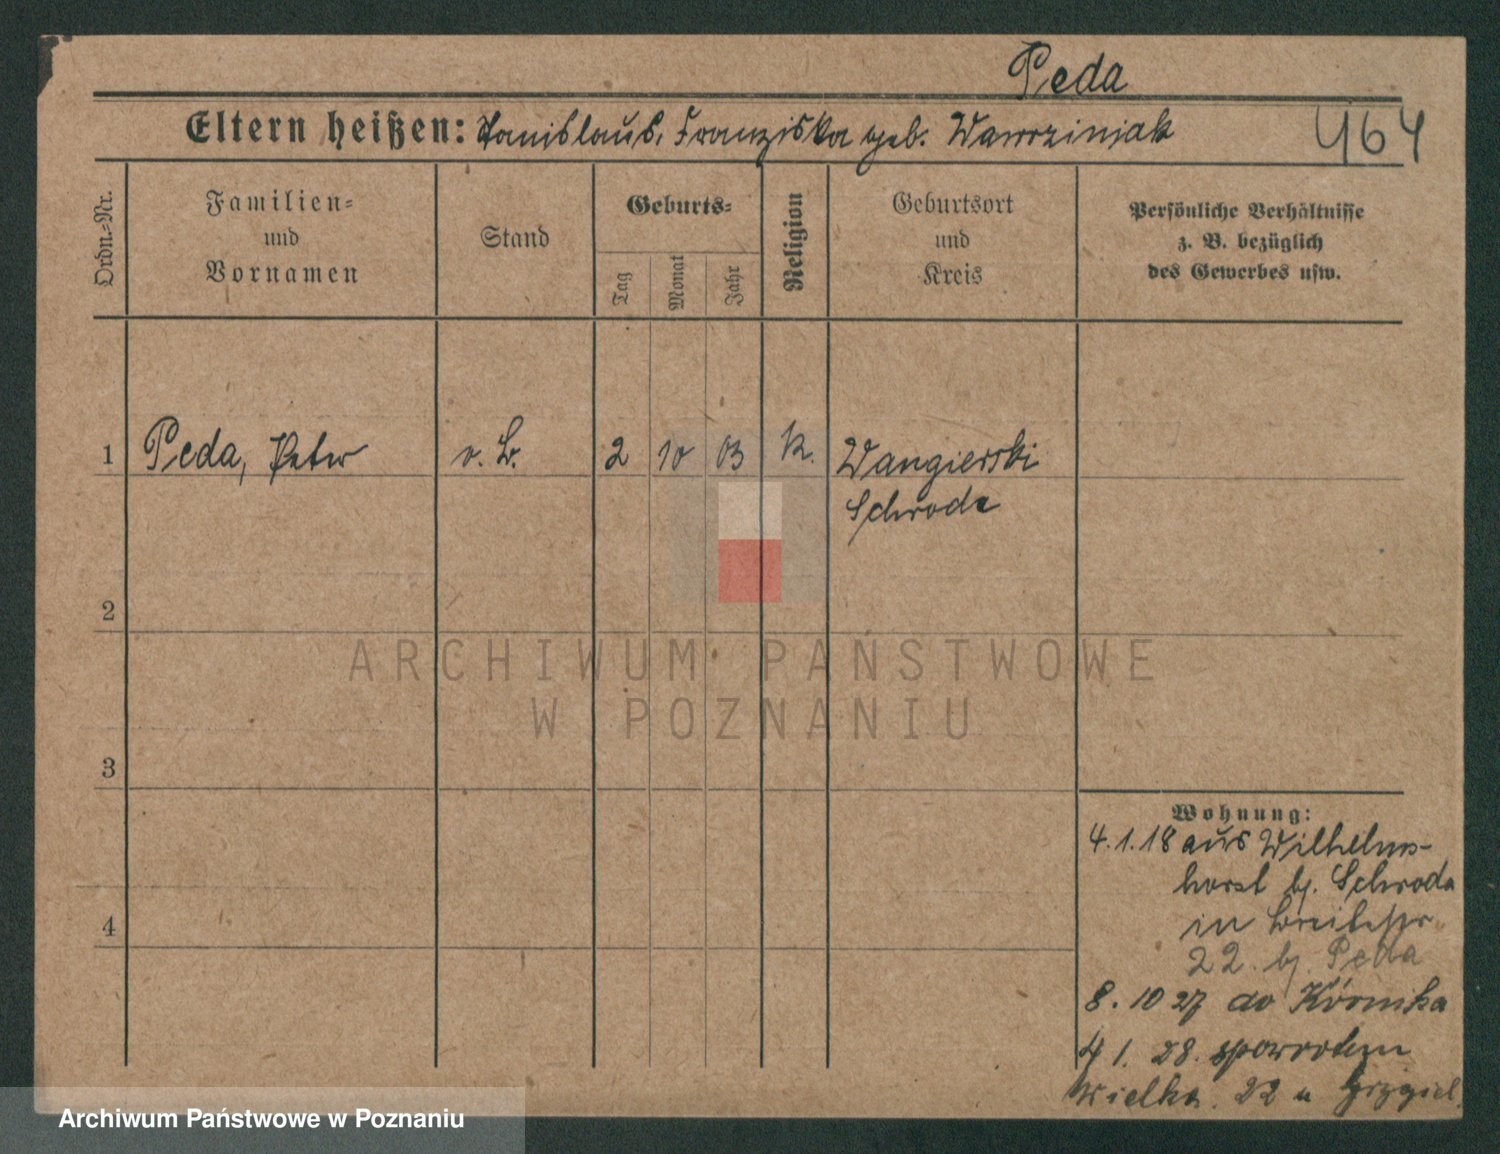 Peda
Eltern heißen: Stanislaus, Franziska geb. Wawrziniak
464
Ordn.-Nr.
Familien-
und
Vornamen
Stand
Geburts-
Tag
Monat
Jahr
Religion
Geburtsort
und
Kreis
Persönliche Verhältnisse
z. B. bezüglich
des Gewerbes usw.
1 Peda, Peter v. B. 2 10 03 k. Wangierski
Schroda
2
3
4
Wohnung:
4.1.18 aus Wilhelms-
horst b. Schroda
in Breitestr.
22 b. Peda
8.10 27 do Kórnika
4 1. 28. spowrotem
Wielka. 22 u
ARCHIWUM PAŃSTWOWE
W POZNANIU
Archiwum Państwowe w Poznaniu